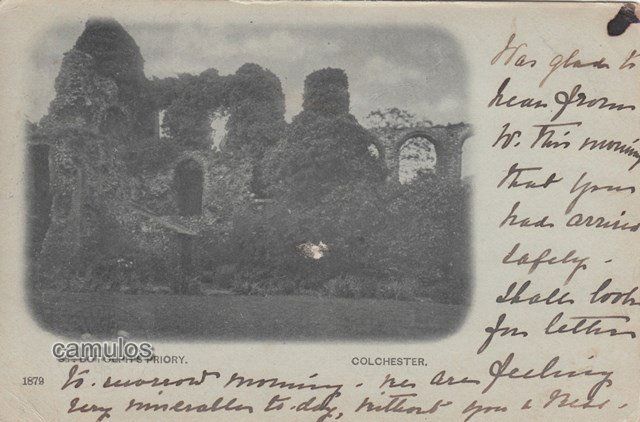 Was glad to
hear from
W. This morning
that you
had arrived
safely -
Shall look
for letter
camulos
ST. BOTOLPH'S PRIORY.
COLCHESTER.
1879
To. morrow morning. we are feeling
very miserable to-day, without you &